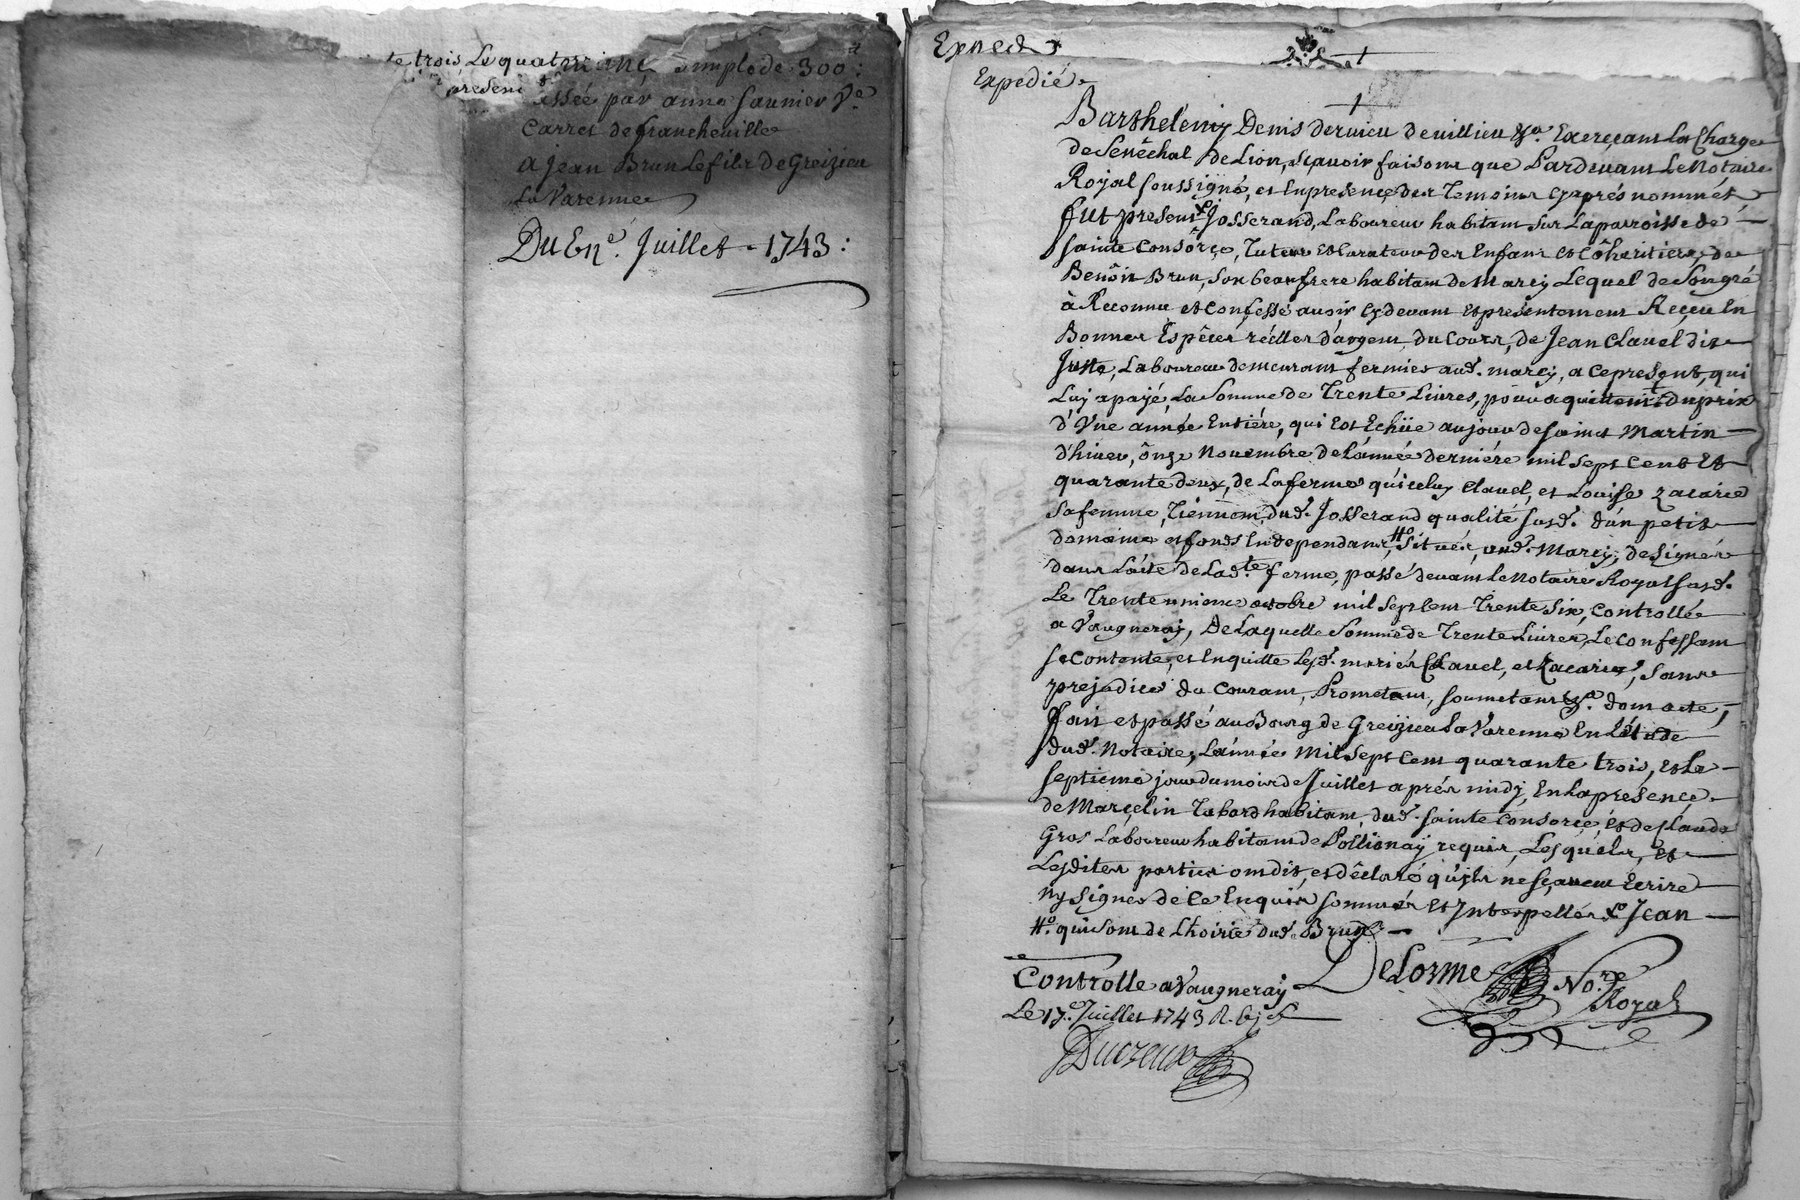 te trois, Le quatorziéme, à emploḋe 300ᵗᵗ:
present
passée par anne Saunier Vᵉ.
Carret de francheville
a jean Brun Le fils De Greizieu
La Varenne
Du 6nᵉ. Juillet - 1743:
Exped
Expedié
Barthelémy Denis dervieu de villieu &ᵃ. Exerçant La Charge
de Senêchal de Lion, sçavoir faisons que Pardevant Le Notaire
Royal soussigné, et En presence des Temoins cy aprés nommés
fut present Josserand, Laboureur habitant sur La parroisse de
sainte Consorçe, Tuteur et Curateur des Enfans et Côheritiers, de
Benôit Brun, son beaufrere habitant de Marcy Lequel de son gré
à Reconnu et confessé avoir cy devant et presentement Reçeu En
Bonnes Espêces réélles d'argent du Cours, de Jean Clavel dit
Juste, Laboureur demeurant fermier aud. marcy, a ce present, qui
Luy a payé, La Somme de Trente Livres, pour aquittement du prix
d'Une année Entiére, qui Est Echüe au jour de saint Martin
d'hiver, ônze Novembre de L'année derniére mil sept Cent Et
quarante deux, de La ferme qu'iceluy Clavel, et Louise Zacarie
Sa femme, Tiennent, dud. Josserand qualité susd. d'un petit
domaine et fonds En dependans, Situés, aud. Marcy, designés
dans L'acte de Lad.ᵗᵉ ferme, passé devant Le Notaire Royal susd.
Le Trente unieme octobre mil sept Cent Trente Six, Controllée
a Vaugneray, De Laquelle Somme de Trente Livres, Le Confessant
se Contente, et En quitte Lesd. mariés Clavel, et Zacarie, Sans
prejudice du Courant, Prometant, Soumetant &ᵃ. dont acte,
fait et passé au Bourg de Greizieu La Varenne En L'étude
dud. Notaire, L'année Mil Sept Cent quarante trois, et Le
septieme jour du mois de Juillet aprés midy, En La presençe
de Marçelin Tabard habitant, dud. sainte Consorçe, et de Claude
Gros Laboureur habitant de Pollionay requis, Lesquels, et
Lesdites parties ont dit, et dêclaré qu'ils ne sçavent Ecrire
ny Signer de ce Enquis sommés Et Interpellés Xᵒ Jean
#ᵒ. qui sont de L'hoirie dud. Brun
DeLorme No.ʳᵉ
Royal
Controlle a Vaugneray
Le 17.ᵉ Juillet 1743 R.
Ducreux